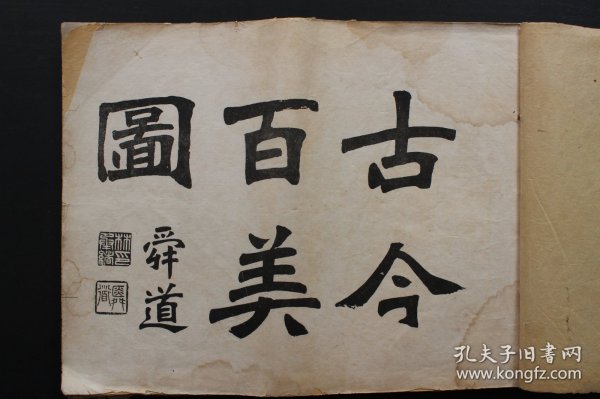 古今
百美
圖
舜道
孔夫子旧书网
www.kongfz.com